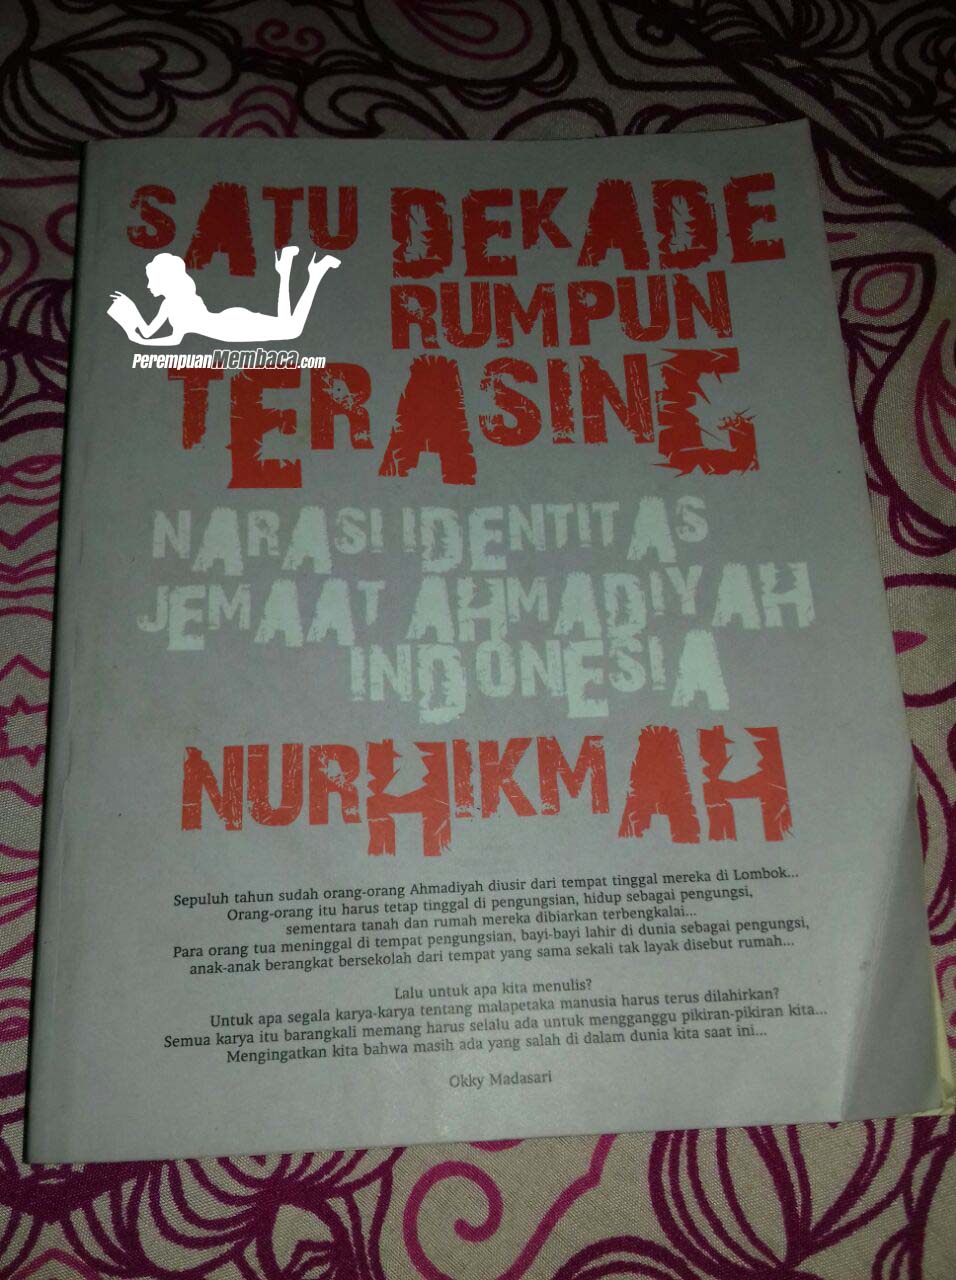 SATU DEKADE
RUMPUN
PerempuanMembaca.com
TERASING
NARASI IDENTITAS
JEMAAT AHMADIYAH
INDONESIA
NURHIKMAH
Sepuluh tahun sudah orang-orang Ahmadiyah diusir dari tempat tinggal mereka di Lombok...
Orang-orang itu harus tetap tinggal di pengungsian, hidup sebagai pengungsi,
sementara tanah dan rumah mereka dibiarkan terbengkalai...
Para orang tua meninggal di tempat pengungsian, bayi-bayi lahir di dunia sebagai pengungsi,
anak-anak berangkat bersekolah dari tempat yang sama sekali tak layak disebut rumah...
Lalu untuk apa kita menulis?
Untuk apa segala karya-karya tentang malapetaka manusia harus terus dilahirkan?
Semua karya itu barangkali memang harus selalu ada untuk mengganggu pikiran-pikiran kita...
Mengingatkan kita bahwa masih ada yang salah di dalam dunia kita saat ini...
Okky Madasari